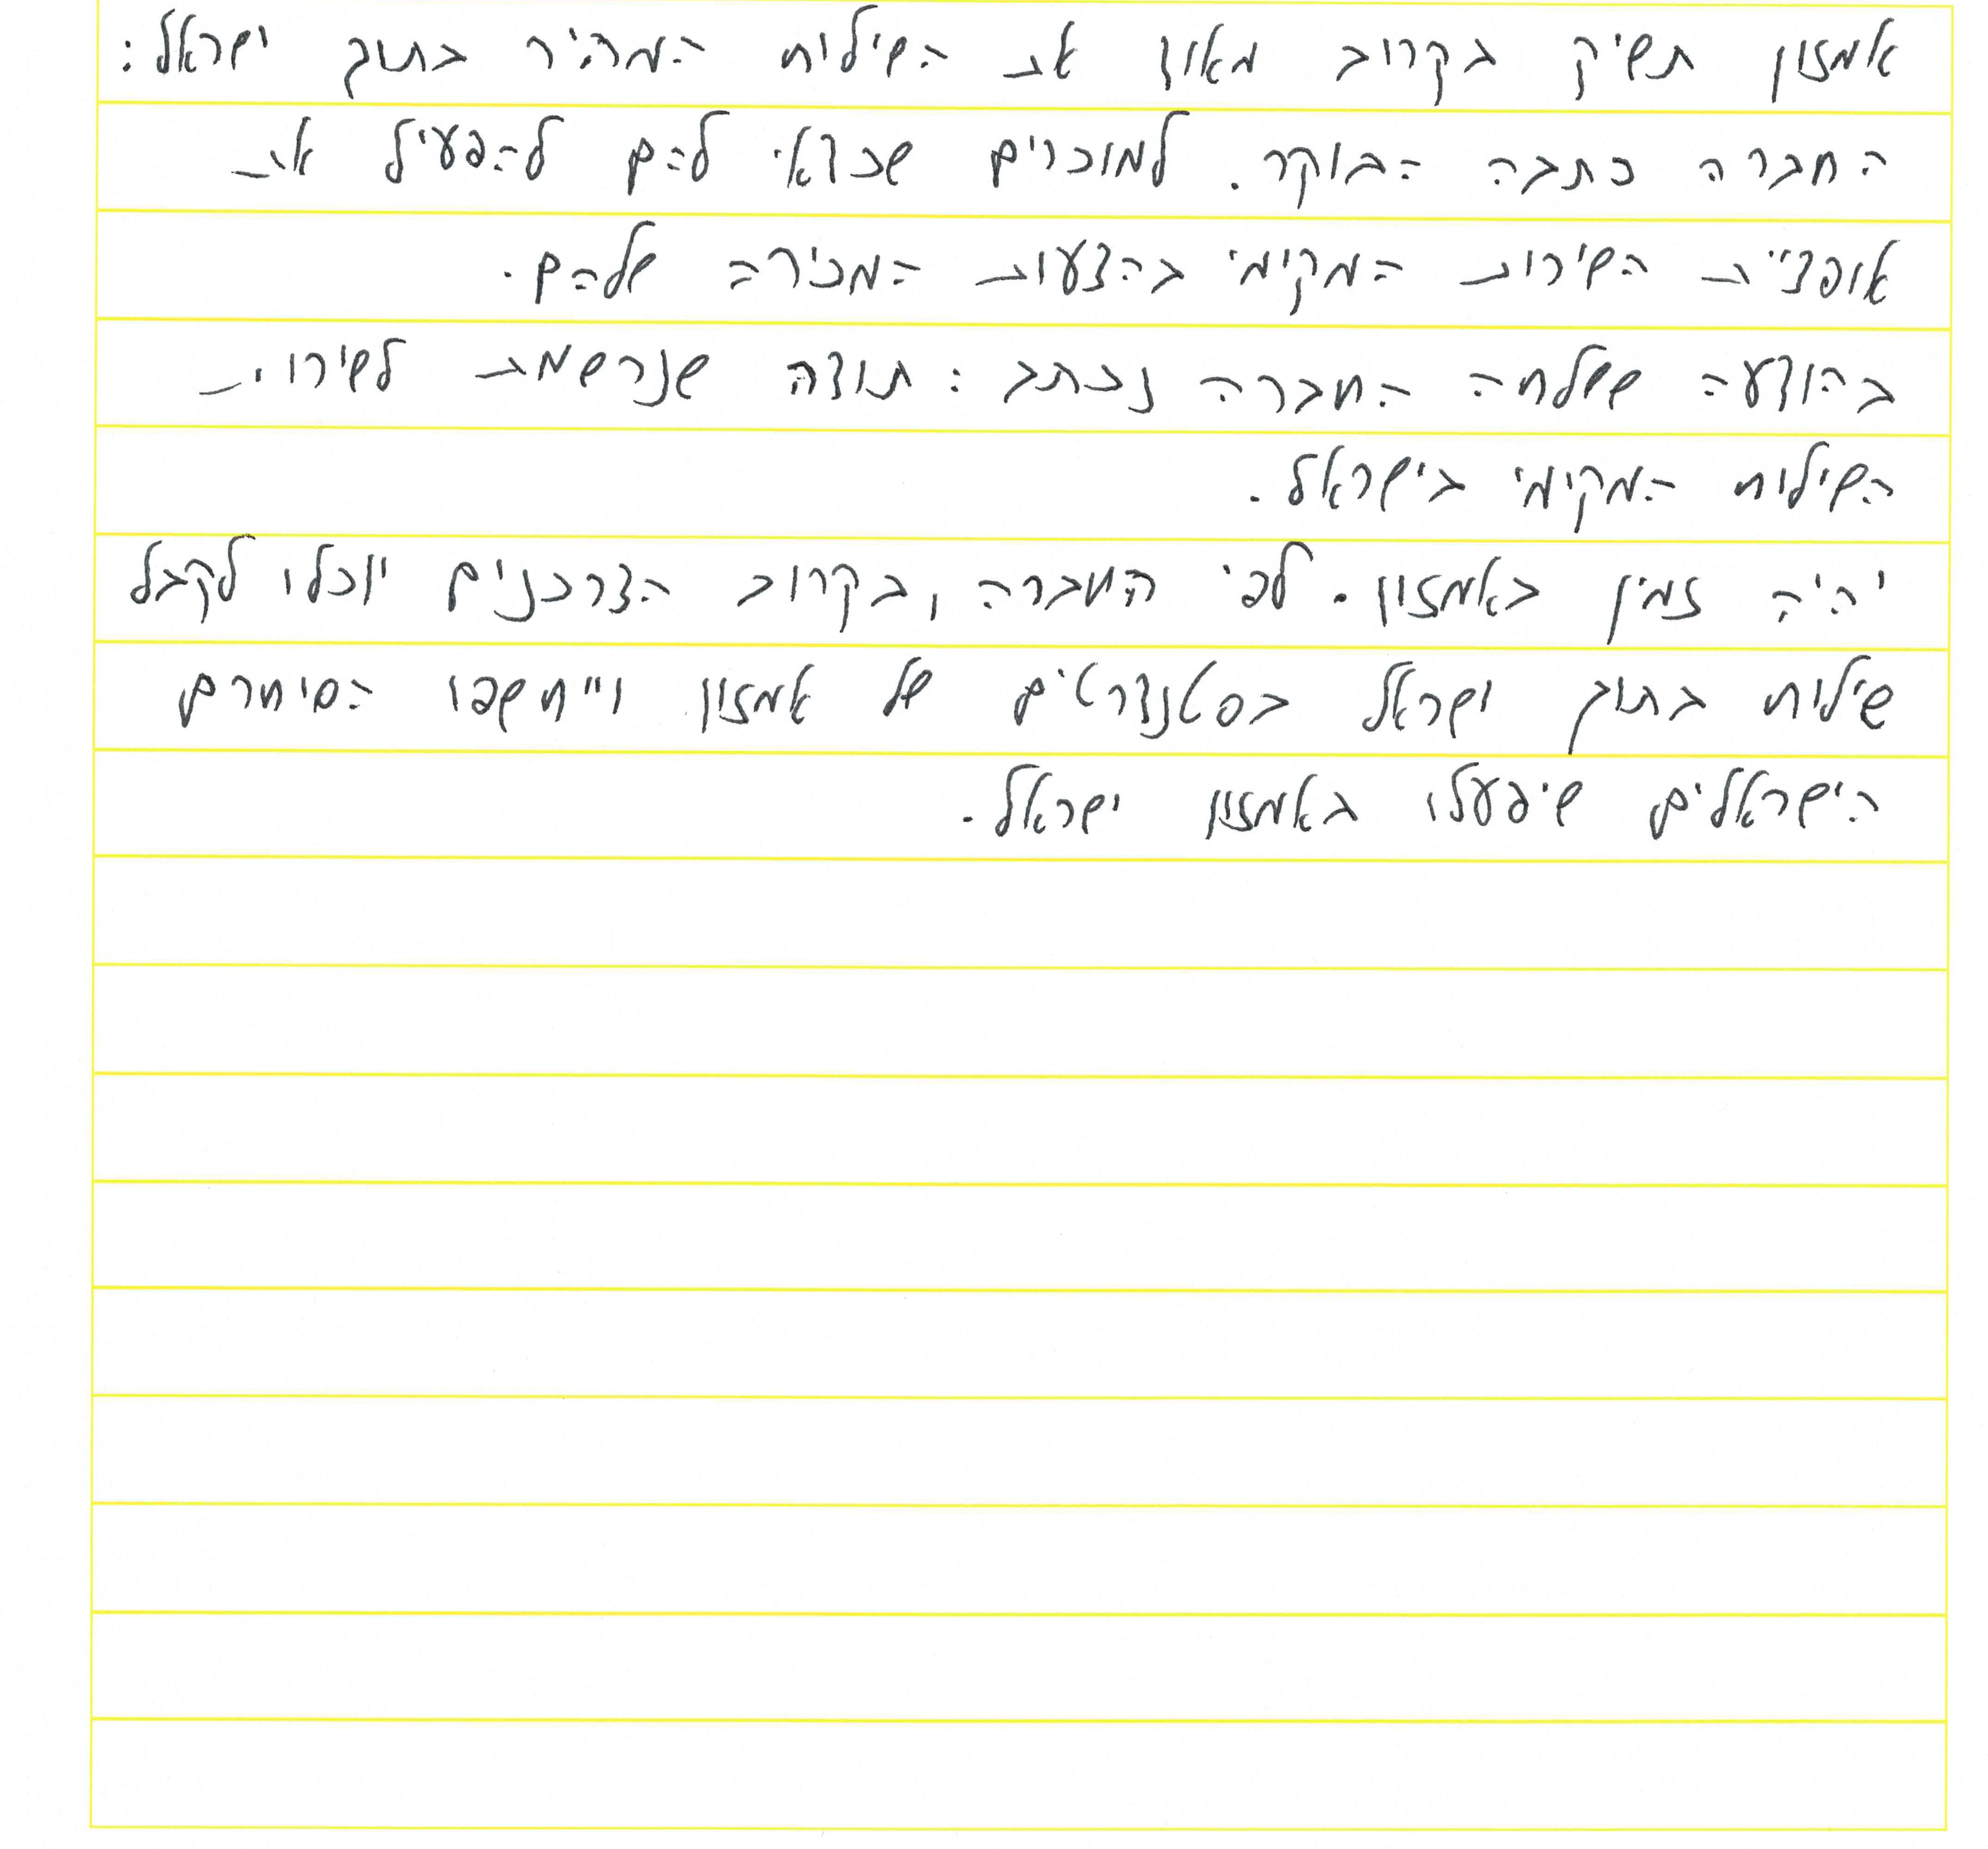 אמזון תשיק בקרוב מאוד את השילוח המהיר בתוך ישראל:
החברה כתבה הבוקר. למוכרים שכדאי להם להפעיל את
אופציית השירות המקימי בהצעות המכירה שלהם.
בהודעה ששלחה החברה נכתב: תודה שנרשמת לשירות
השילוח המקימי בישראל.
יהיה זמין באמזון. לפי החברה, בקרוב הצרכנים יוכלו לקבל
שילוח בתוך ישראל בסטנדרטים של אמזון וייחשפו הסוחרים
הישראלים שיפעלו באמזון ישראל.